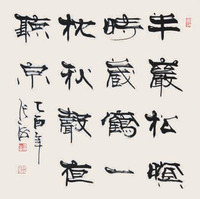 半巖松暝
時藏鶴一
枕秋聲夜
聽泉
乙酉年
張海